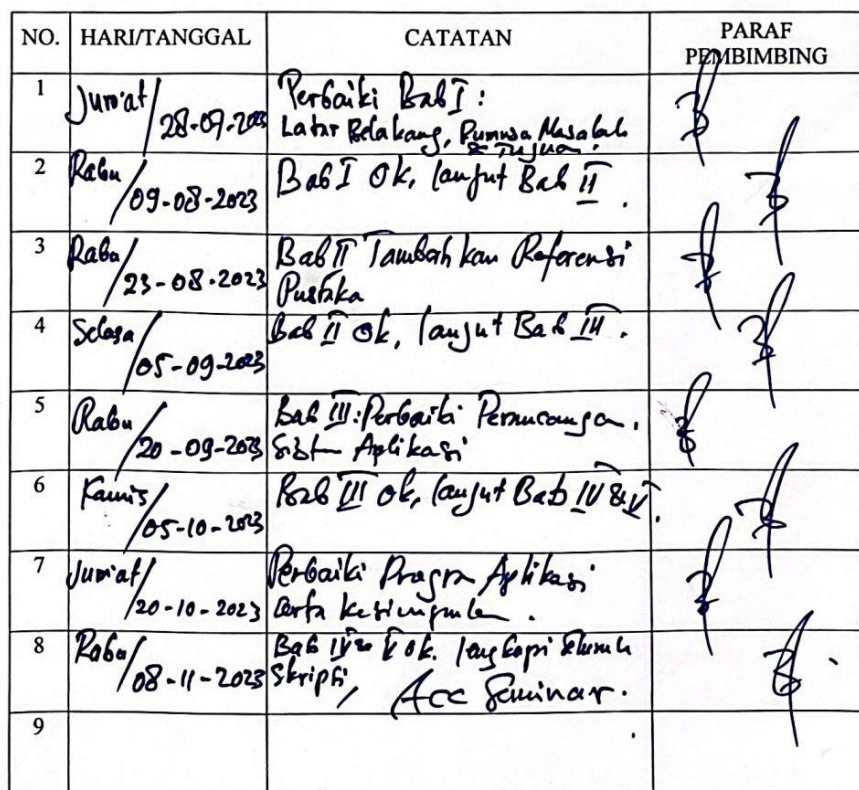 NO. HARI/TANGGAL CATATAN PARAF
PEMBIMBING
1 Jum'at/ 28-07-2023 Perbaiki Bab I :
Latar Belakang, Rumusa Masalah
& Tujuan.
2 Rabu/ 09-08-2023 Bab I Ok, lanjut Bab II.
3 Rabu/ 23-08-2023 Bab II Tambahkan Referensi
Pustaka
4 Selasa/ 05-09-2023 Bab II Ok, lanjut Bab III.
5 Rabu/ 20-09-2023 Bab III: Perbaiki Perancangan.
Sistem Aplikasi
6 Kamis/ 05-10-2023 Bab III Ok, lanjut Bab IV & V.
7 Jum'at/ 20-10-2023 Perbaiki Program Aplikasi
serta kesimpulan.
8 Rabu/ 08-11-2023 Bab IV & V ok. lengkapi seluruh
Skripsi, Acc Seminar.
9